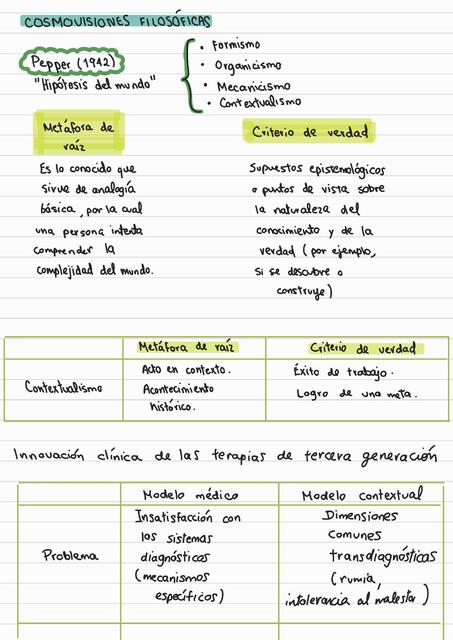 COSMOVISIONES FILOSÓFICAS
Pepper (1942)
"Hipótesis del mundo"
• Formismo
• Organicismo
• Mecanicismo
• Contextualismo
Metáfora de
raíz
Es lo conocido que
sirve de analogía
básica, por la cual
una persona intenta
comprender la
complejidad del mundo.
Criterio de verdad
Supuestos epistemológicos
o puntos de vista sobre
la naturaleza del
conocimiento y de la
verdad (por ejemplo,
si se descubre o
construye)
Metáfora de raíz
Criterio de verdad
Contextualismo
Acto en contexto.
Acontecimiento
histórico.
Éxito de trabajo.
Logro de una meta.
Innovación clínica de las terapias de tercera generación
Modelo médico
Modelo contextual
Problema
Insatisfacción con
los sistemas
diagnósticos
(mecanismos
específicos)
Dimensiones
comunes
transdiagnósticas
(rumia,
intolerancia al malestar)